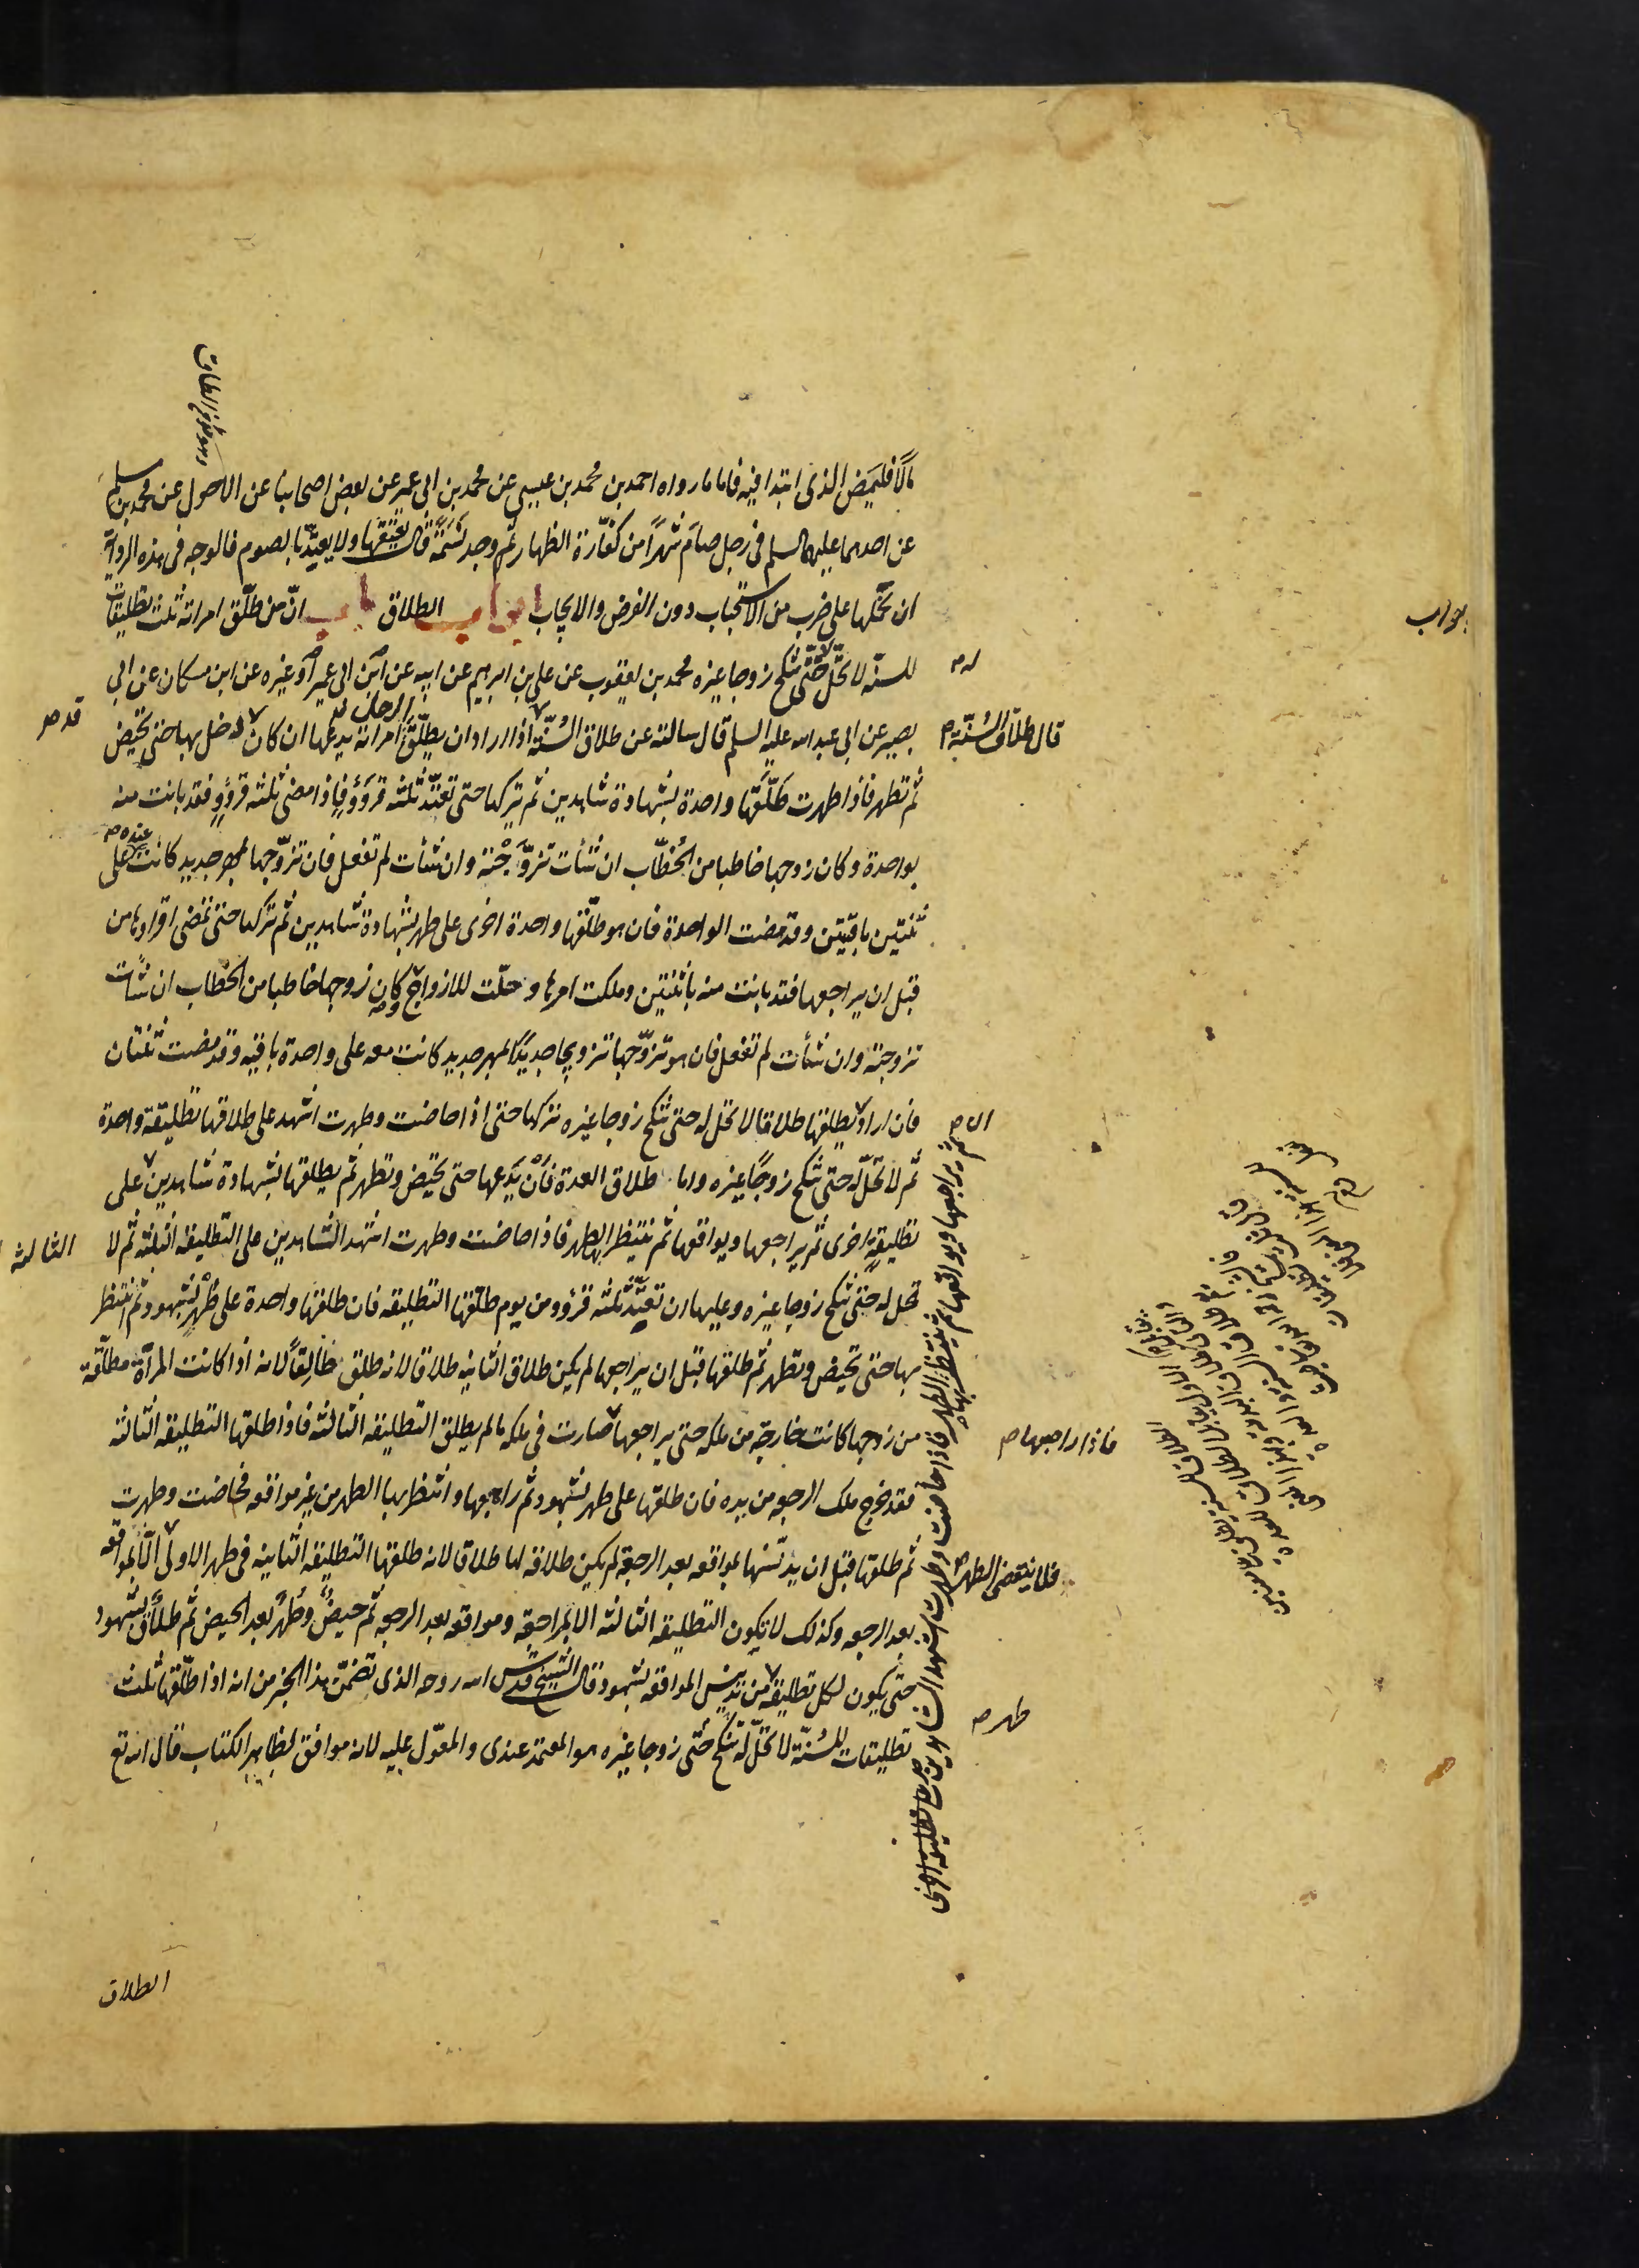 مالا فليمض الذى ابتدا فيه فاما ما رواه احمد بن محمد بن عيسى عن محمد بن ابى عمير عن بعض اصحابنا عن الاحول عن محمد بن مسلم
عن احدهما عليهما السلم فى رجل صام شهرا من كفارة الظهار ثم وجد نسمة قال يعتقها ولا يعتد بالصوم فالوجه فى هذه الرواية
ان نحملها على ضرب من الاستحباب دون الفرض والايجاب ابواب الطلاق باب ان من طلق امراته ثلث تطليقات
للسنة لا تحل له حتى تنكح زوجا غيره محمد بن يعقوب عن على بن ابرهيم عن ابيه عن ابن ابى عمير او غيره عن ابن مسكان عن ابى
بصير عن ابى عبد الله عليه السلم قال سالته عن طلاق السنة اذا اراد ان يطلق الرجل امراته يدعها ان كان دخل بها حتى تحيض
قال طلاق السنة
قد
ثم تطهر فاذا طهرت طلقها واحدة بشهادة شاهدين ثم يتركها حتى تعتد ثلثة قروؤ فاذا مضى ثلثة قروؤ فقد بانت منه
بواحدة وكان زوجها خاطبا من الخطاب ان شأت تزوجته وان شأت لم تفعل فان تزوجها بمهر جديد كانت عنده على
ثنتين باقيتين وقد مضت الواحدة فان هو طلقها واحدة اخرى على طهر بشهادة شاهدين ثم تركها حتى تمضى اقراؤها من
قبل ان يراجعها فقد بانت منه باثنتين وملكت امرها وحلت للازواج وكان زوجها خاطبا من الخطاب ان شأت
تزوجته وان شأت لم تفعل فان هو تزوجها تزويجا جديدا بمهر جديد كانت معه على واحدة باقيه وقد مضت ثنتان
فان اراد ان يطلقها طلاقا لا تحل له حتى تنكح زوجا غيره تركها حتى اذا حاضت وطهرت اشهد على طلاقها تطليقة واحدة
ثم لا تحل له حتى تنكح زوجا غيره واما طلاق العدة فان يدعها حتى تحيض وتطهر ثم يطلقها بشهادة شاهدين على
تطليقة اخرى ثم يراجعها ويواقعها ثم ينتظر بها الطهر فاذا حاضت وطهرت اشهد الشاهدين على التطليقه الثلثه ثم لا
الثالثه
تحل له حتى تنكح زوجا غيره وعليها ان تعتد ثلثه قروؤ من يوم طلقها التطليقه فان طلقها واحدة على طهر بشهود ثم انتظر
بها حتى تحيض وتطهر ثم طلقها قبل ان يراجعها لم يكن طلاق الثانيه طلاقا لانه طلق طالقا لانه اذا كانت المرأة مطلقة
من زوجها كانت خارجة من ملكه حتى يراجعها صارت فى ملكه ما لم يطلق التطليقه الثالثه فاذا طلقها التطليقه الثالثه
فاذا راجعها
فقد خرج ملك الرجعه من يده فان طلقها على طهر بشهود ثم راجعها وانتظر بها الطهر من غير مواقعه فحاضت وطهرت
ثم طلقها قبل ان يدنسها بمواقعه بعد الرجعة لم يكن طلاقه لها طلاقا لانه طلقها التطليقه الثانيه فى طهر الاولى الا بمواقعه
فلا ينقضى الطهر
بعد الرجعه وكذلك لا يكون التطليقه الثالثه الا بمراجعة ومواقعه بعد الرجعه ثم حيض وطهر بعد الحيض ثم طلاق بشهود
حتى يكون لكل تطليقة من تدنيس المواقعه بشهود قال الشيخ قدس الله روحه الذى تضمن هذا الخبر من انه اذا طلقها ثلث
طهر
تطليقات للسنة لا تحل له حتى تنكح زوجا غيره هو المعتمد عندى والمعول عليه لانه موافق لظاهر الكتاب قال الله تع
ثم يراجعها ويواقعها ثم ينتظر بها الطهر فاذا حاضت وطهرت اشهد الشاهدين على تطليقة اخرى
الطلاق